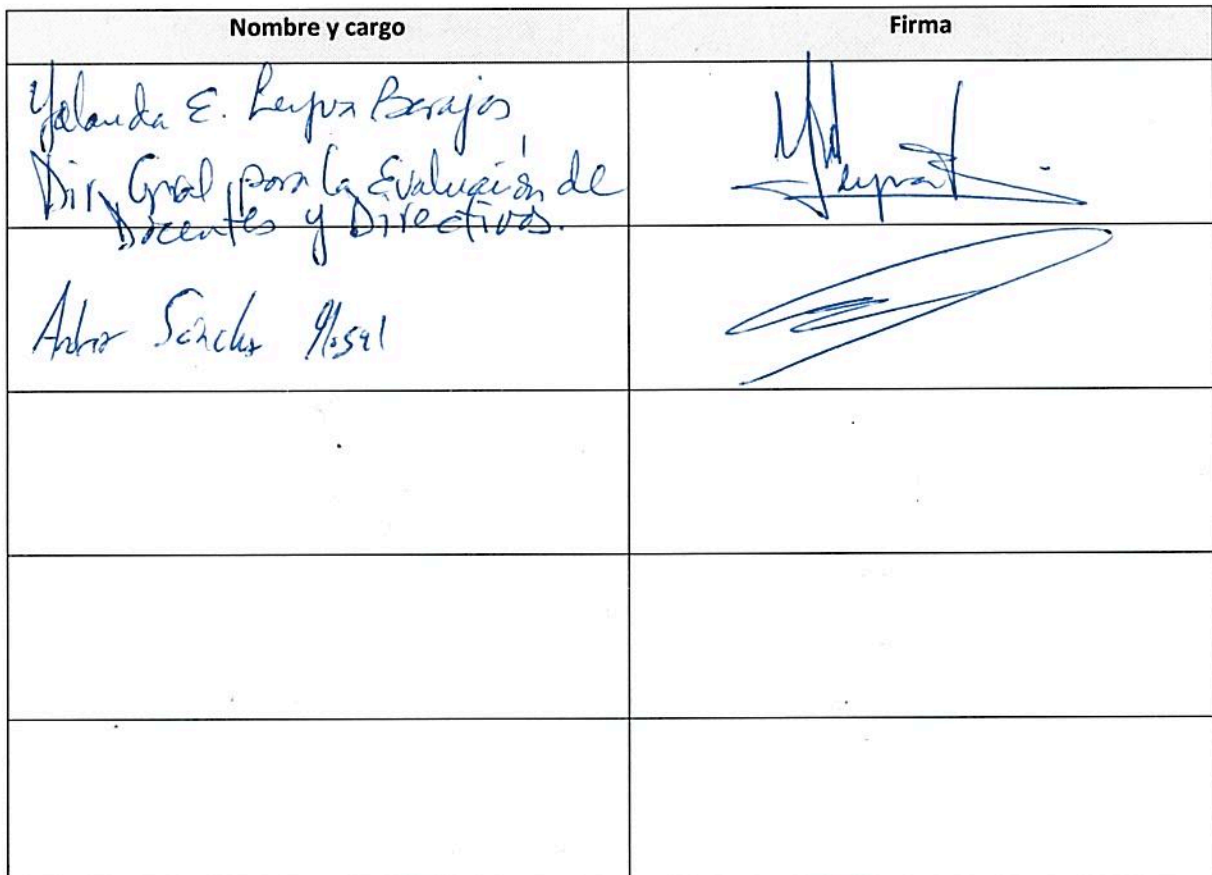 Nombre y cargo
Firma
Yolanda E. Leyva Barajas
Dir. Gral para la Evaluación de
Docentes y Directivos.
Sánchez